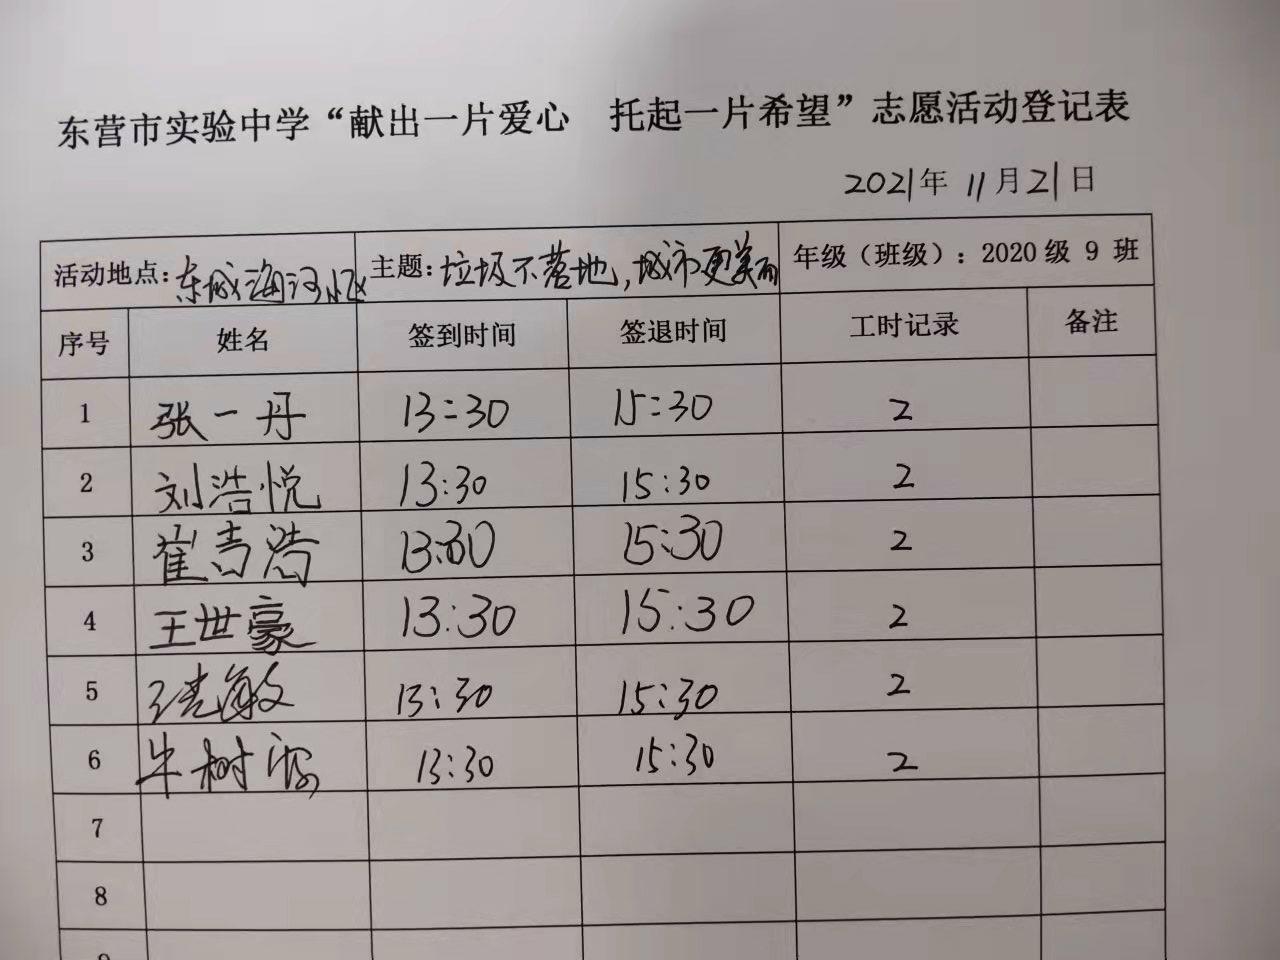 东营市实验中学“献出一片爱心 托起一片希望”志愿活动登记表
2021年 11月21日
活动地点：东城海河小区 主题：垃圾不落地，城市更美丽 年级（班级）：2020级 9 班
序号 姓名 签到时间 签退时间 工时记录 备注
1 张一丹 13:30 15:30 2
2 刘浩悦 13:30 15:30 2
3 崔吉浩 13:30 15:30 2
4 王世豪 13:30 15:30 2
5 13:30 15:30 2
6 牛树 13:30 15:30 2
7
8
9